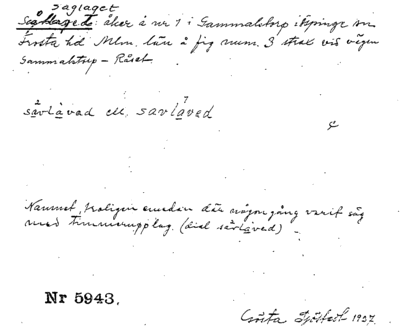 Saglaget
Såglaged: åker å nr 7 i Gammalstorp i Öppinge sn
Frosta hd Mlm. län å fig num. 3 strax vid vägen
Gammalstorp - Råset
såvlàvad ell. savlaved
Namnet, troligen emedan där någon gång varit såg
med timmerupplag. (dial såvlàved)
Nr 5943.
Gösta Sjöstedt 1937.